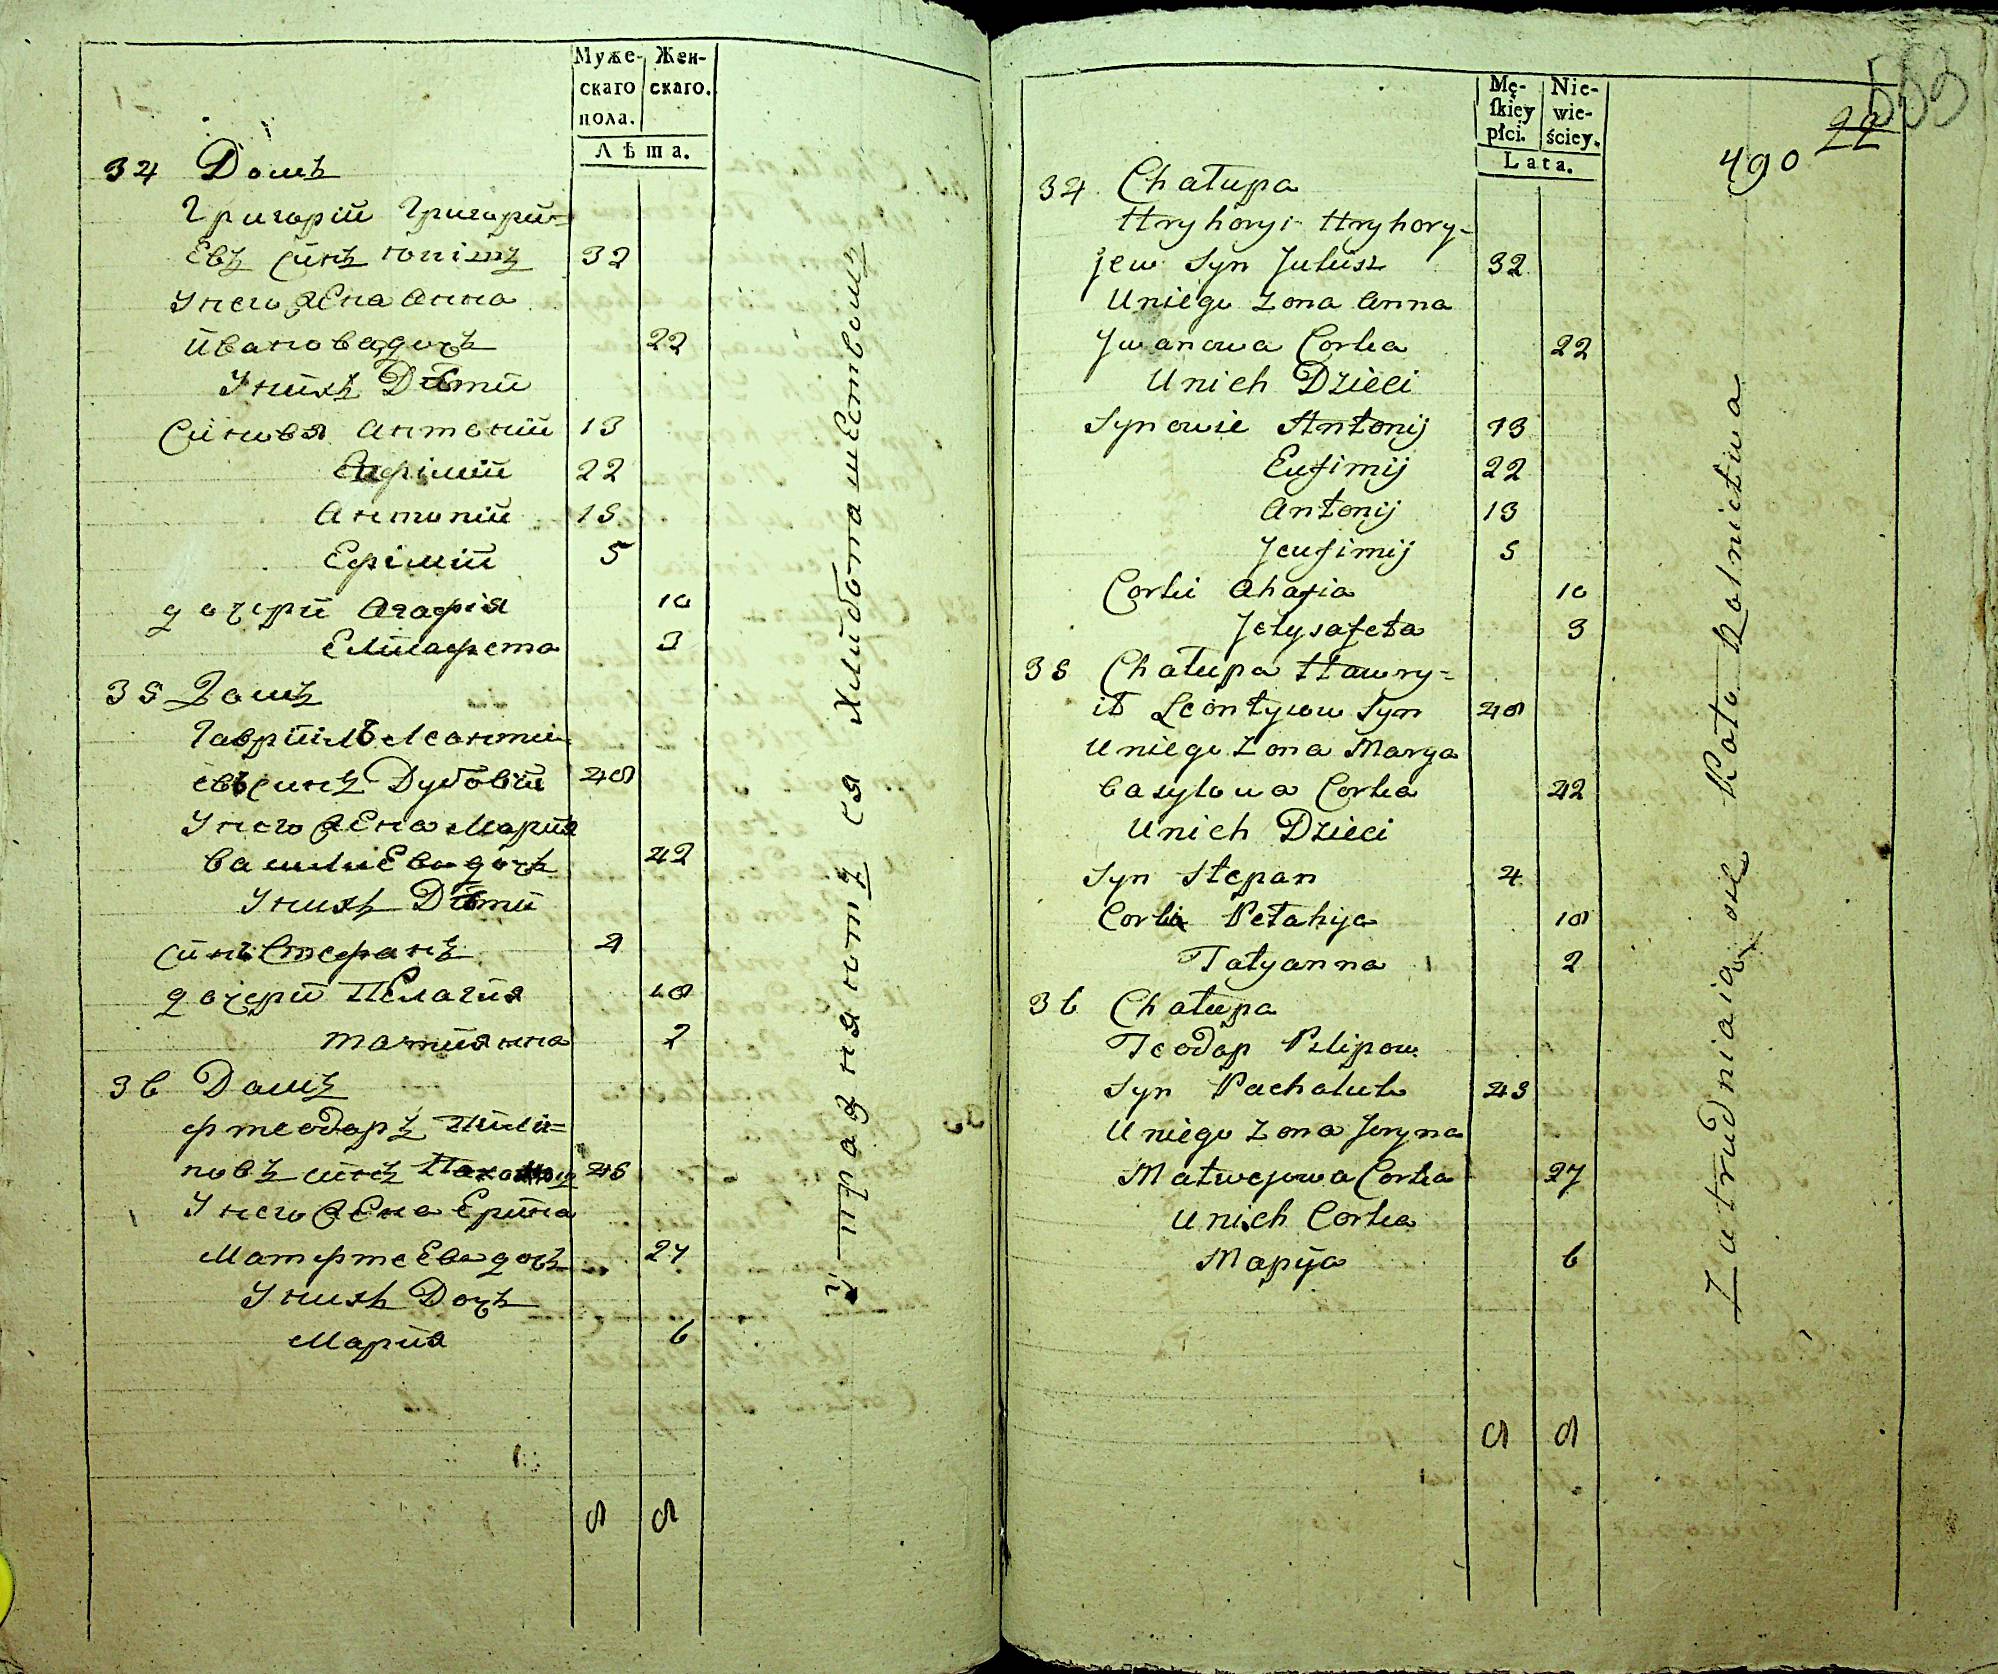 Муже-
скаго
пола.
Жен-
скаго.
Лѣта.
34 Домъ
Григорій Григори=
Евъ синъ юлішъ 32
Унего жЕна Анна
Ивановадочь 22
Унихъ Дѣти
Синовя Антоній 13
Ефімій 22
Антоній 15
Ефімій 5
дочери Агафія 10
Елисафета 3
35 Домъ
Гавріилъ Леонти
евъ синъ Дубовій 48
Унего жЕна Мария
василиЕвадочь 42
Унихъ Дѣти
синъ Стефанъ 4
дочери ПЕлагия 18
татиянна 2
36 Домъ
фтеодаръ Пили=
повъ синъ 45
Унего жЕна Ерина
МатфтеЕвадочь 27
Унихъ Дочь
Мария 6
8 8
упразняютъ ся хлиботашЕствомъ
Mę-
skiey
płci.
Nie-
wie-
ściey.
Lata.
553
22
490
34 Chałupa
Hryhoryi Hryhory-
jew Syn Julisz 32
Uniego Zona Anna
Jwanowa Corka 22
Unich Dzieci
Synowie Antonij 13
Eufimij 22
Antonij 13
Jeufimij 5
Corki Ahafia 10
Jelysafeta 3
35 Chałupa Hawry=
ił Leontyiow Syn 48
Uniego Zona Marya
Basylowa Corka 42
Unich Dzieci
Syn Stepan 4
Corki Pełahija 18
Tatyanna 2
36 Chałupa
Теодар Pilipow
Syn Pachaluk 43
Uniego Zona Jeryna
Matwejowa Corka 27
Unich Corka
Марija 6
8 8
Zatrudniaią sie Koło Rolnictwa